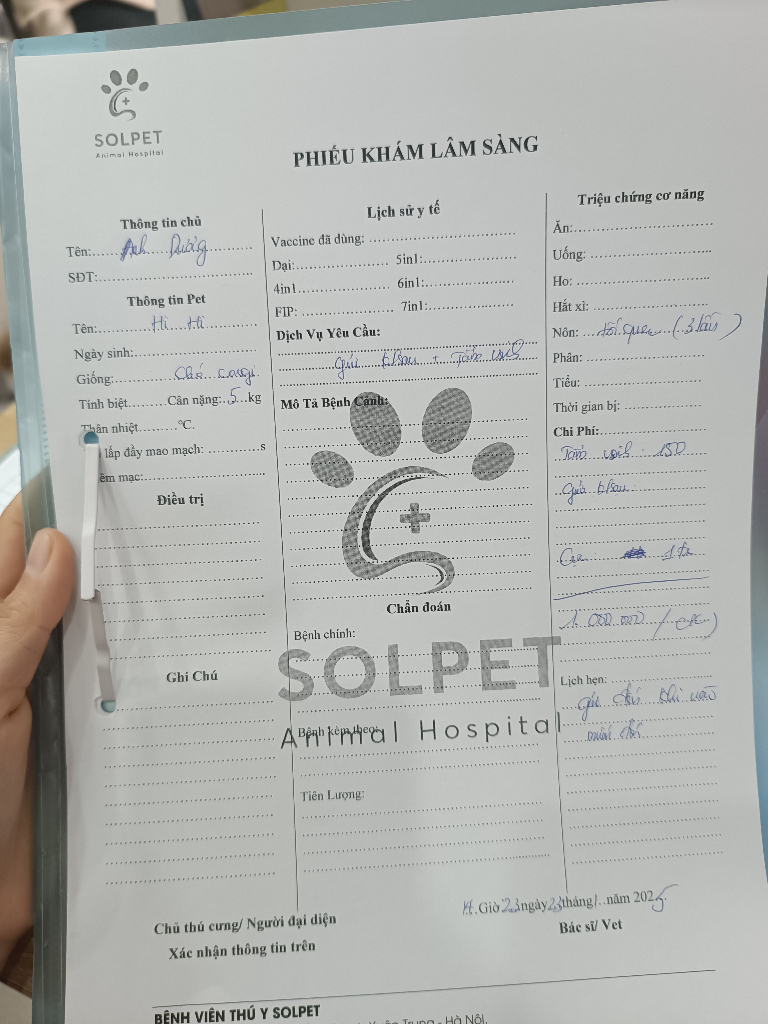 SOLPET
Animal Hospital
PHIẾU KHÁM LÂM SÀNG
Thông tin chủ
Tên: Anh Dương
SĐT:
Thông tin Pet
Tên: Hi Hi
Ngày sinh:
Giống: Chó corgi
Tính biệt Cân nặng: 5 kg
Thân nhiệt °C.
lấp đầy mao mạch: s
êm mạc:
Điều trị
Ghi Chú
Lịch sử y tế
Vaccine đã dùng:
Dại: 5in1:
4in1 6in1:
FIP: 7in1:
Dịch Vụ Yêu Cầu:
+ Tắm
Mô Tả Bệnh Cảnh:
Chẩn đoán
Bệnh chính:
SOLPET
Bệnh kèm theo:
Animal Hospital
Tiên Lượng:
Triệu chứng cơ năng
Ăn:
Uống:
Ho:
Hắt xì:
Nôn: tối qua (3 lần)
Phân:
Tiểu:
Thời gian bị:
Chi Phí:
Tắm 150
Cọc 1tr
1.000.000 /
Lịch hẹn:
khi nào
Giờ 23 ngày 23 tháng 1 năm 2025
Chủ thú cưng/ Người đại diện
Xác nhận thông tin trên
Bác sĩ/ Vet
BỆNH VIỆN THÚ Y SOLPET
Trung - Hà Nội.